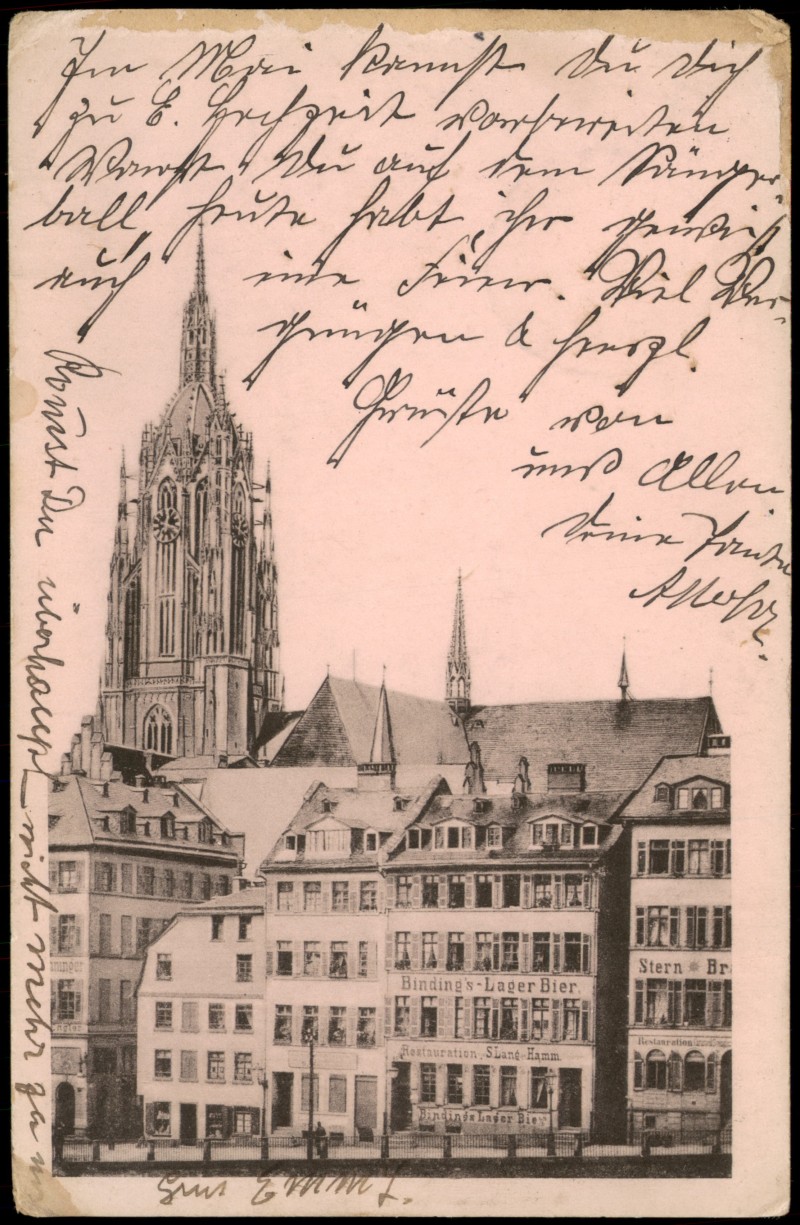 Im Mai kannst Du Dich
zu E. Hochzeit vorbereiten
Warst Du auf dem Sänger-
ball, heute habt ihr gewiß
auch eine Feier. Viel Ver-
gnügen & herzl.
Grüße von
uns Allen
Deine Tante
Komst Du überhaupt nicht mehr zu
Stern Br
Binding's-Lager Bier.
Restauration
Restauration S. Lang-Hamm.
Binding's Lager Bie